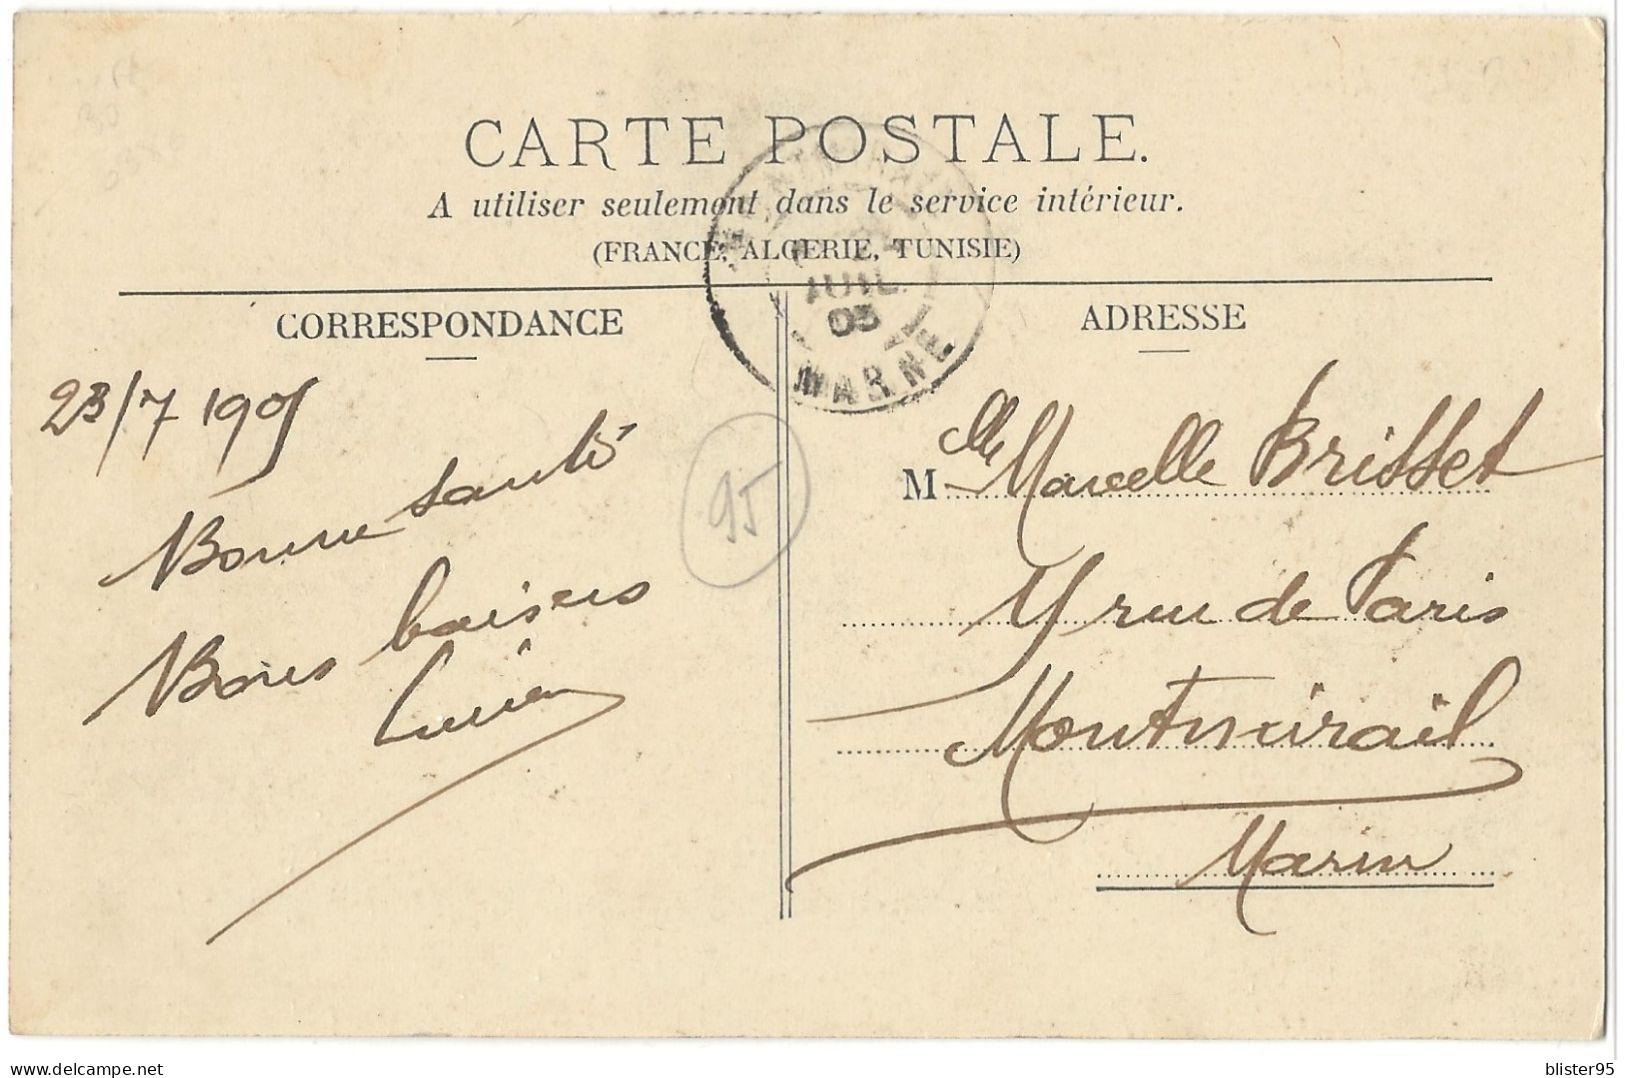 CARTE POSTALE.
A utiliser seulement dans le service intérieur.
(FRANCE, ALGERIE, TUNISIE)
JUIL
05
MARNE
CORRESPONDANCE
23/7 1905
Bonne santé
Bons baisers
Lucien
95
ADRESSE
M lle Marcelle Brisset
rue de Paris
Montmirail
Marne
delcampe.net
blister95